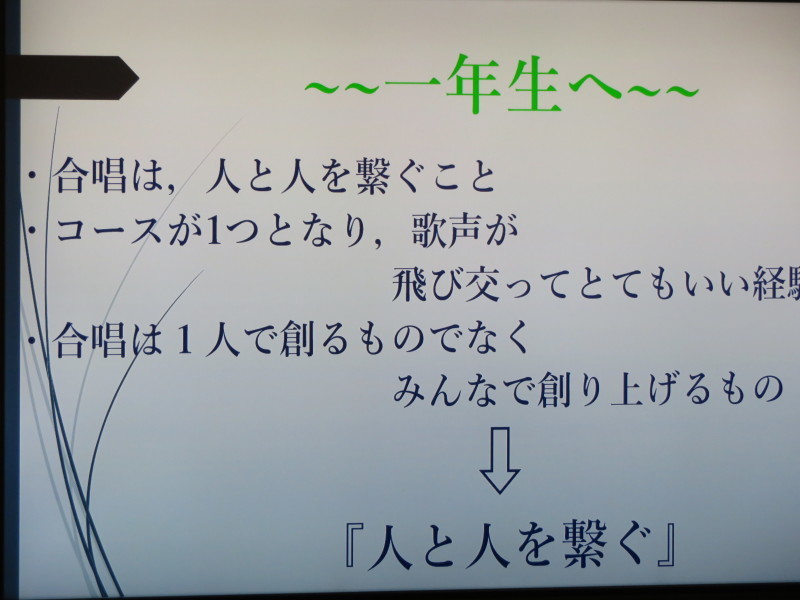 ~~一年生へ~~
・合唱は，人と人を繋ぐこと
・コースが1つとなり，歌声が
飛び交ってとてもいい経験
・合唱は１人で創るものでなく
みんなで創り上げるもの
『人と人を繋ぐ』